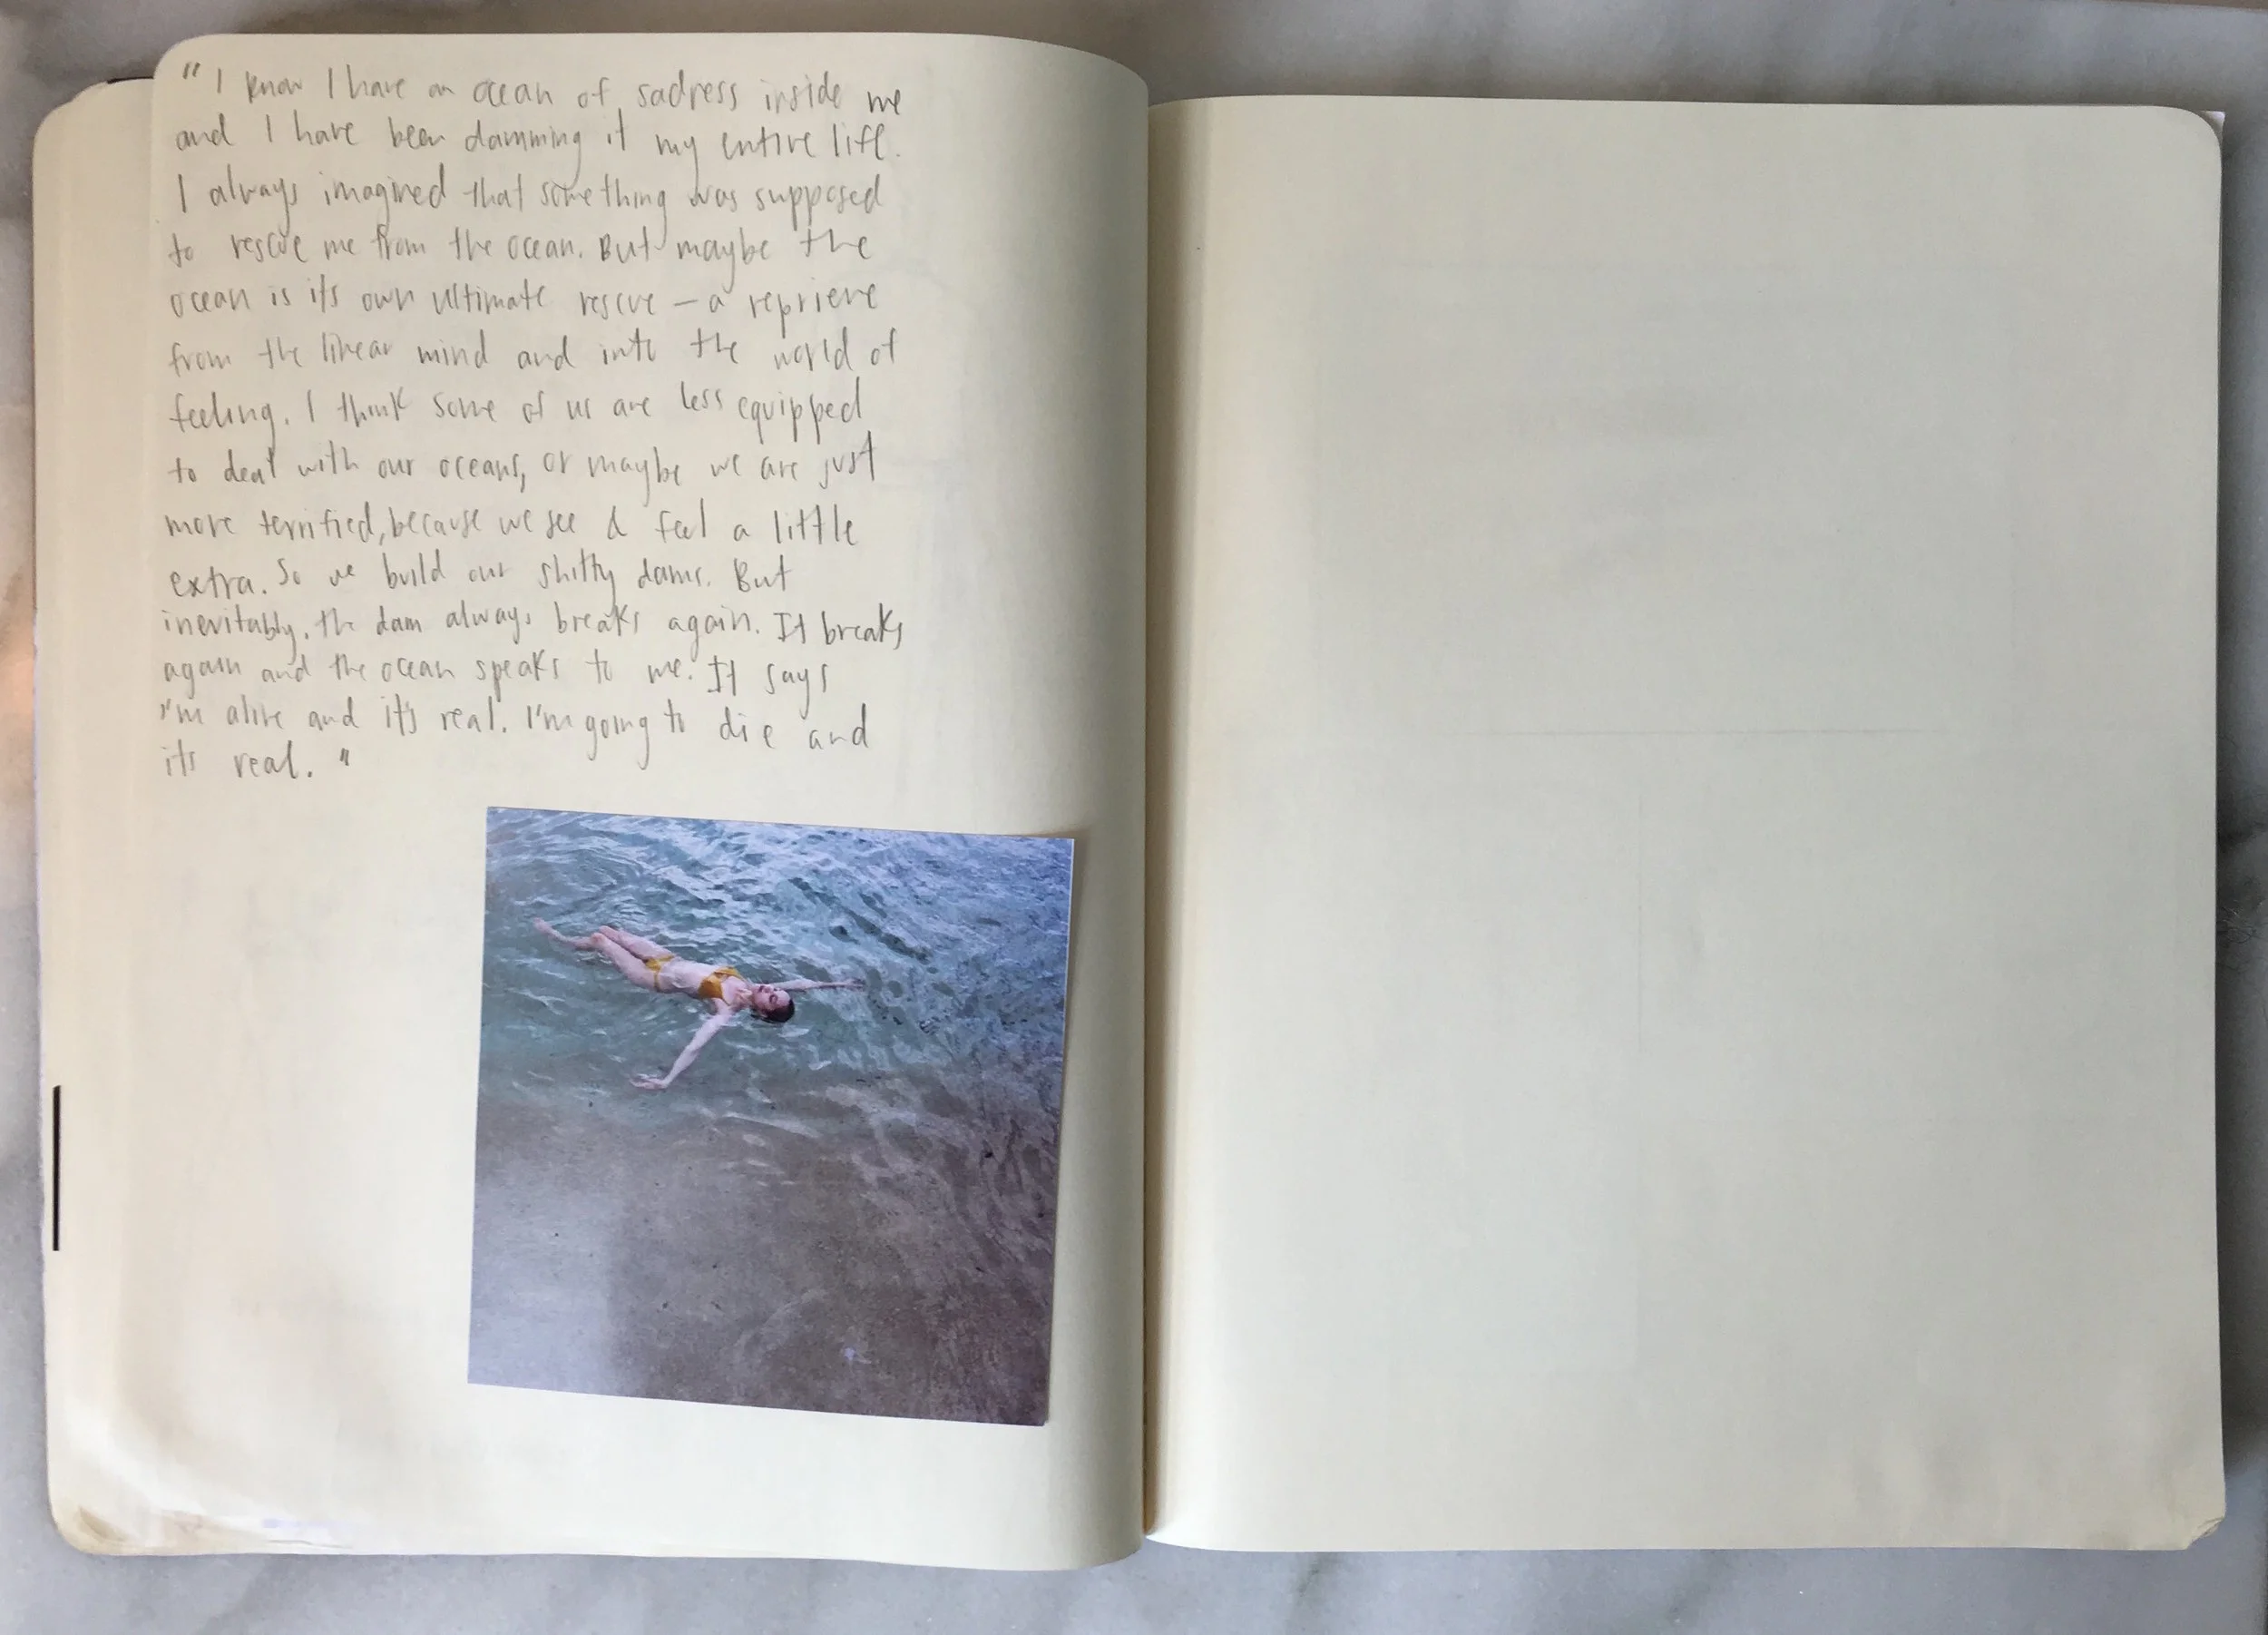 "I know I have an ocean of sadness inside me
and I have been damming it my entire life.
I always imagined that something was supposed
to rescue me from the ocean. But maybe the
ocean is its own ultimate rescue — a reprieve
from the linear mind and into the world of
feeling. I think some of us are less equipped
to deal with our oceans, or maybe we are just
more terrified, because we see & feel a little
extra. So we build our shitty dams. But
inevitably, the dam always breaks again. It breaks
again and the ocean speaks to me. It says
I'm alive and it's real. I'm going to die and
its real."